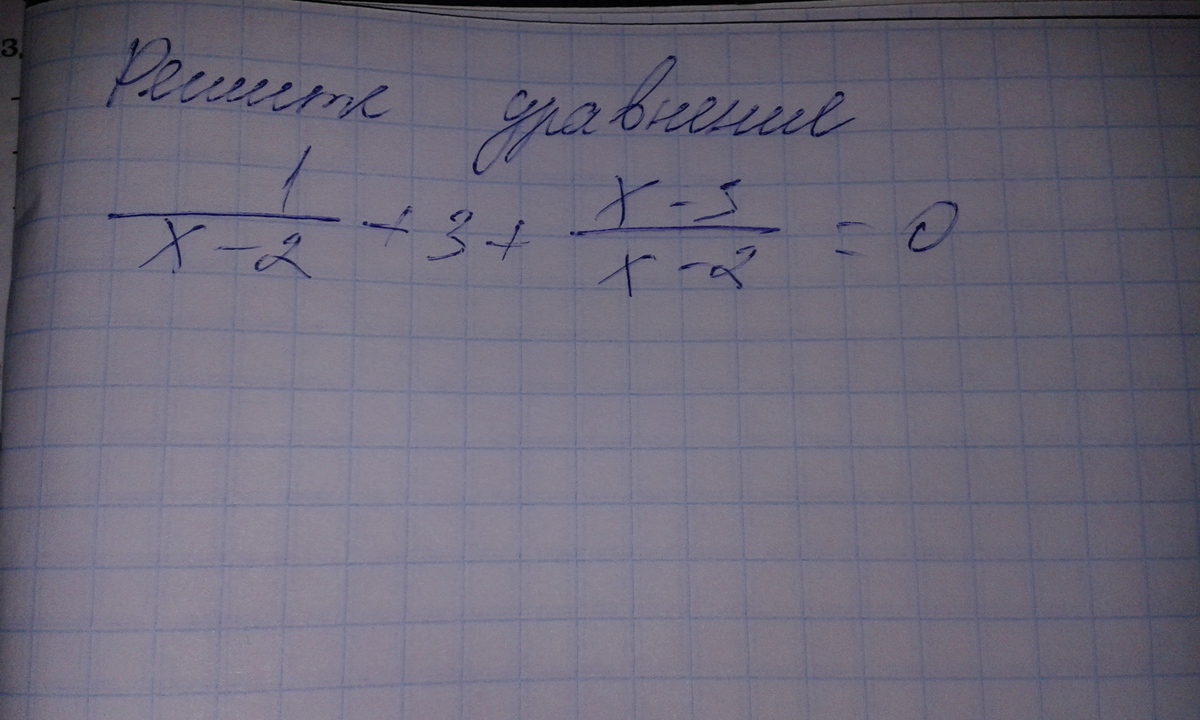 3.
Решите уравнение
\frac{1}{x-2} + 3 + \frac{x-3}{x-2} = 0